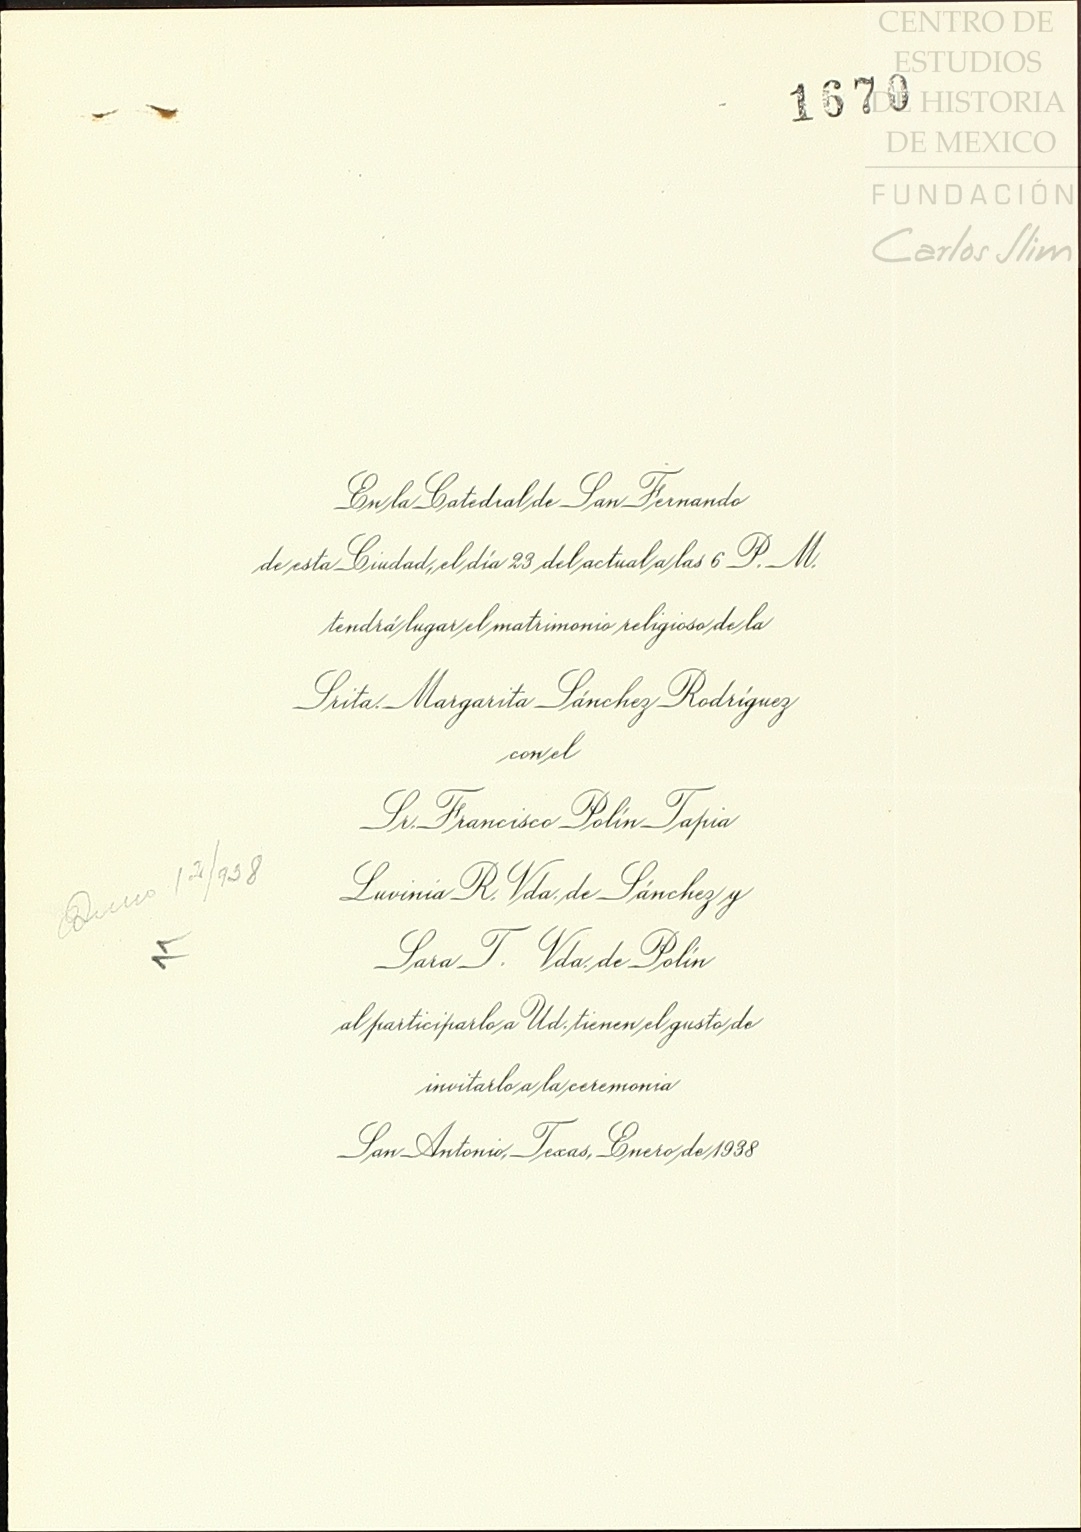 CENTRO DE
ESTUDIOS
DE HISTORIA
DE MEXICO
FUNDACIÓN
Carlos Slim
1670
En la Catedral de San Fernando
de esta Ciudad, el día 23 del actual a las 6 P. M.
tendrá lugar el matrimonio religioso de la
Srita. Margarita Sánchez Rodríguez
con el
Sr. Francisco Polín Tapia
Luvinia R. Vda. de Sánchez y
Sara T. Vda. de Polín
al participarlo a Ud. tienen el gusto de
invitarlo a la ceremonia
San Antonio, Texas, Enero de 1938
/938
11